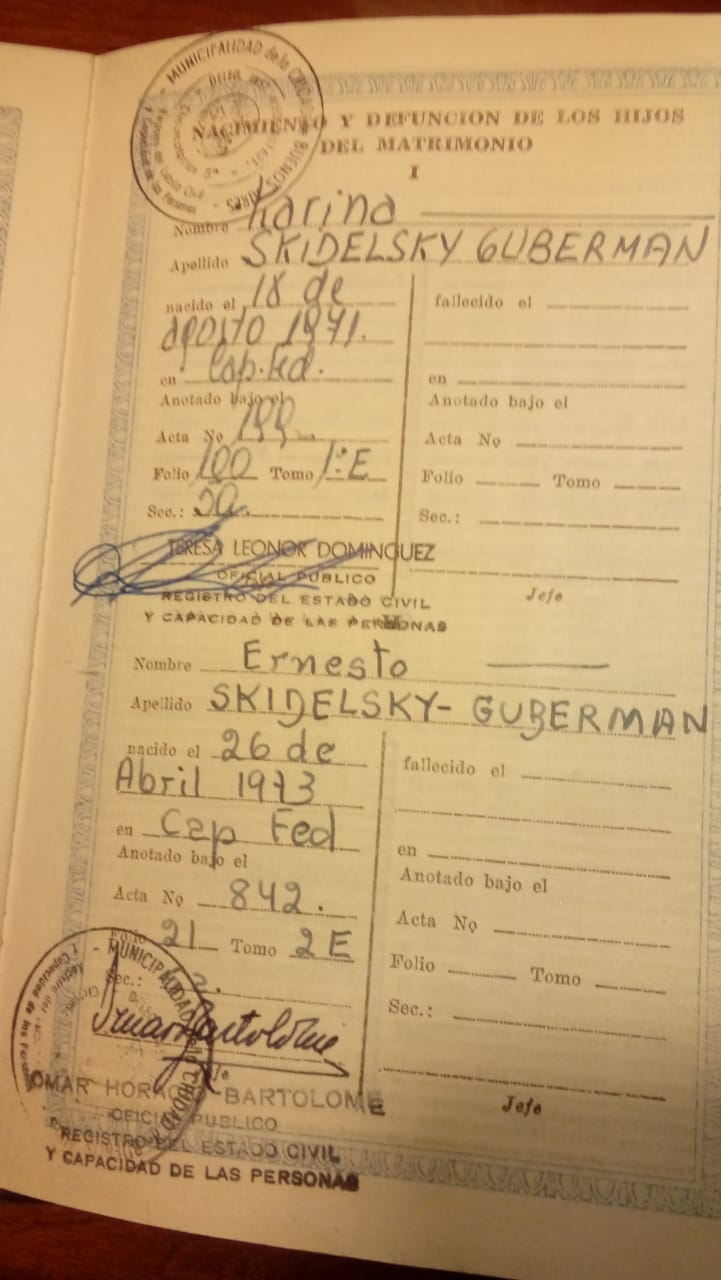 MUNICIPALIDAD de la CIUDAD BUENOS AIRES
NACIMIENTO Y DEFUNCION DE LOS HIJOS
DEL MATRIMONIO
I
Nombre Karina
Apellido SKIDELSKY GUBERMAN
nacido el 18 de
agosto 1971.
en Cap. Fed.
Anotado bajo el
Acta No 199
Folio 100 Tomo 1º E
Sec.:
fallecido el
en
Anotado bajo el
Acta No
Folio Tomo
Sec.:
Jefe
TERESA LEONOR DOMINGUEZ
OFICIAL PUBLICO
REGISTRO DEL ESTADO CIVIL
Y CAPACIDAD DE LAS PERSONAS
II
Nombre Ernesto
Apellido SKIDELSKY- GUBERMAN
nacido el 26 de
Abril 1973
en Cap Fed
Anotado bajo el
Acta No 842.
Folio 21 Tomo 2 E
Sec.:
fallecido el
en
Anotado bajo el
Acta No
Folio Tomo
Sec.:
Jefe
MUNICIPALIDAD DE LA CIUDAD
Omar Bartolome
OMAR HORACIO BARTOLOME
OFICIAL PUBLICO
REGISTRO DEL ESTADO CIVIL
Y CAPACIDAD DE LAS PERSONAS